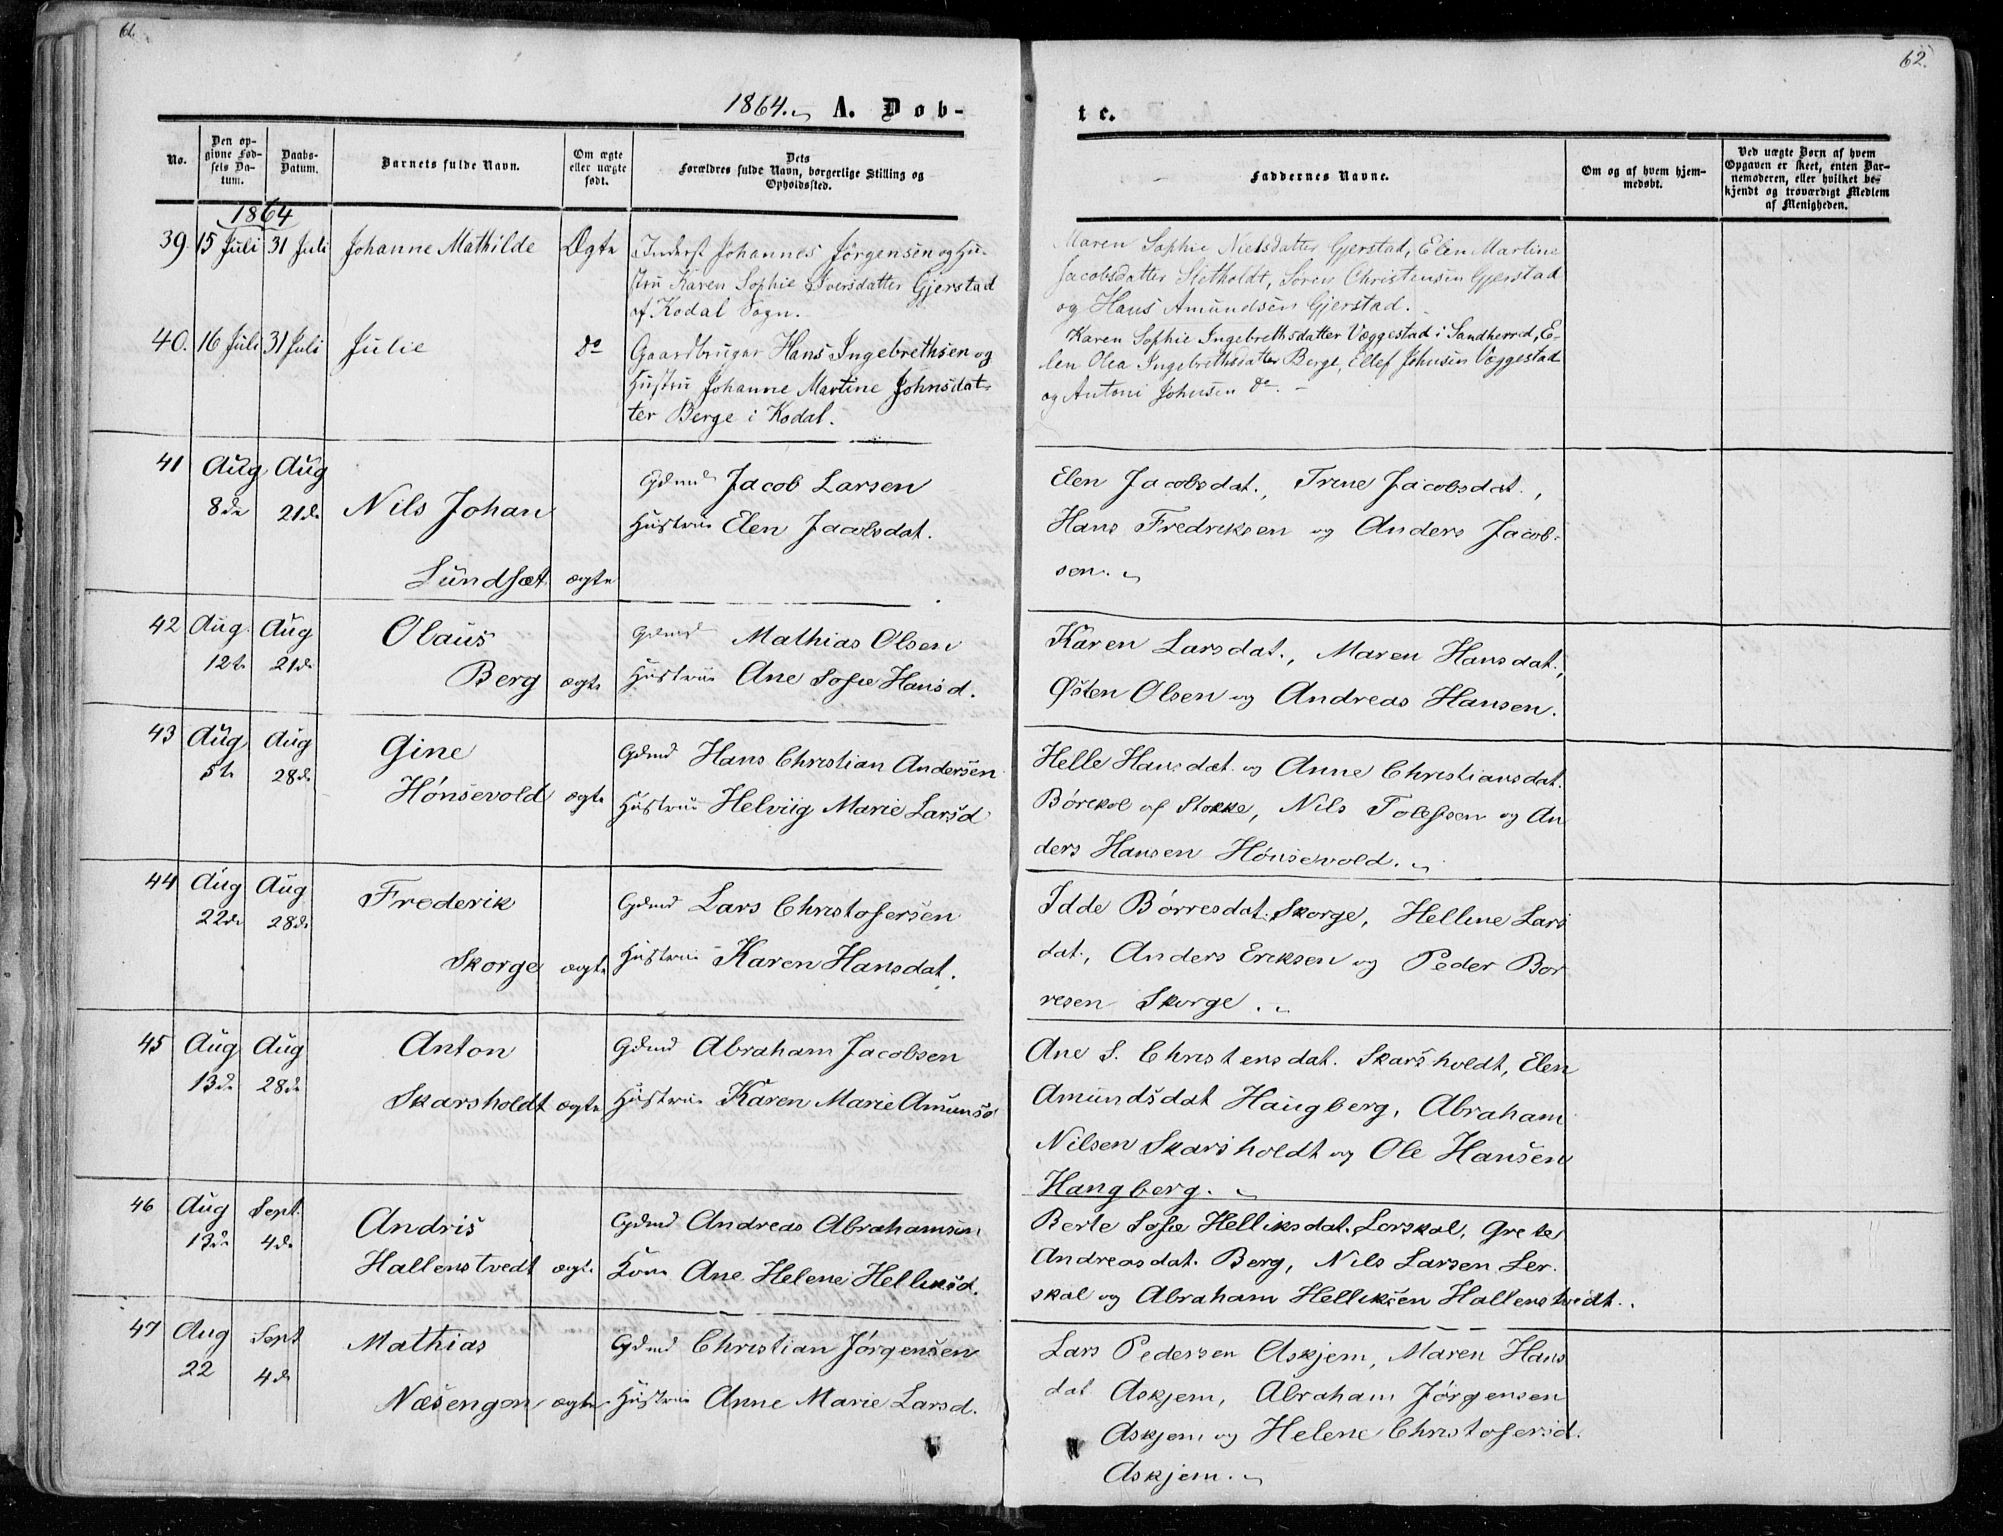 61.
1864. A. Døb-
No.
Den opgivne Fødsels Datum.
Daabs-Datum.
Barnets fulde Navn.
Om ægte eller uægte født.
Dets Forældres fulde Navn, borgerlige Stilling og Opholdssted.
1864
39 15 Juli 31 Juli Johanne Mathilde Ægte Inderst Johannes Jørgensen og Hu-
stru Karen Sophie Iversdatter Gjerstad
af Kodal Sogn.
40. 16 Juli 31 Juli Julie do Gaardbruger Hans Ingebrethsen og
Hustru Johanne Martine Johnsdat-
ter Berge i Kodal.
41 Aug Aug Gdmd Jacob Larsen
8de 21de Nils Johan Hustrue Elen Jacobsdat.
Lundsæt ægte
42 Aug. Aug Olaus Gdmd Mathias Olsen
12te 21de Berg ægte Hustrue Ane Sofie Hansd.
43 Aug Aug Gine Gdmd Hans Christian Andersen
5te 28de Hønsevold ægte Hustrue Helviig Marie Larsd
44 Aug Aug Frederik Gdmd Lars Christofersen
22de 28de Skorge ægte Hustrue Karen Hansdat.
45 Aug Aug Anton Gdmd Abraham Jacobsen
13de 28de Skarsholdt ægte Hustrue Karen Marie Amunsd
46 Aug Sept. Andris Gdmd Andreas Abrahamsen
13de 4de Hallenstvedt ægte Kone Ane Helene Helliksd.
47 Aug Sept Mathias Gdmd Christian Jørgensen
22 4de Næsengen ægte Hustrue Anne Marie Larsd.
62.
te.
Faddernes Navne.
Om og af hvem hjemmedøbt.
Ved uægte Børn af hvem Opgaven er skeet, enten Barnemoderen, eller hvilket bekjendt og troværdigt Medlem af Menigheden.
Maren Sophie Nielsdatter Gjerstad, Elen Martine
Jacobsdatter Sletholdt, Søren Christensen Gjerstad
og Hans Amundsen Gjerstad.
Karen Sophie Ingebrethsdatter Væggestad i Sandherred, E-
len Olea Ingebrethsdatter Berge, Ellef Johnsen Væggestad
og Antoni Johnsen do. -
Elen Jacobsdat., Trine Jacobsdat.,
Hans Fredriksen og Anders Jacob-
sen.
Karen Larsdat., Maren Hansdat.,
Østen Olsen og Andreas Hansen.
Helle Hansdat. og Anne Christiansdat.
Børekol af Stokke, Nils Tolefsen og An
ders Hansen Hønsevold.
Idde Børresdat. Skorge, Helline Lars
dat., Anders Eriksen og Peder Bør
resen Skorge.
Ane S. Christensdat. Skarsholdt, Elen
Amundsdat Haugberg, Abraham
Nilsen Skarsholdt og Ole Hansen
Haugberg.
Berte Sofie Helliksdat. Lerskal, Grete
Andreasdat. Berg, Nils Larsen Ler-
skal og Abraham Helliksen Hallenstvedt.
Lars Pedersen Askjem, Maren Hans
dat Askjem, Abraham Jørgensen
Askjem og Helene Christofersd.
Askjem.